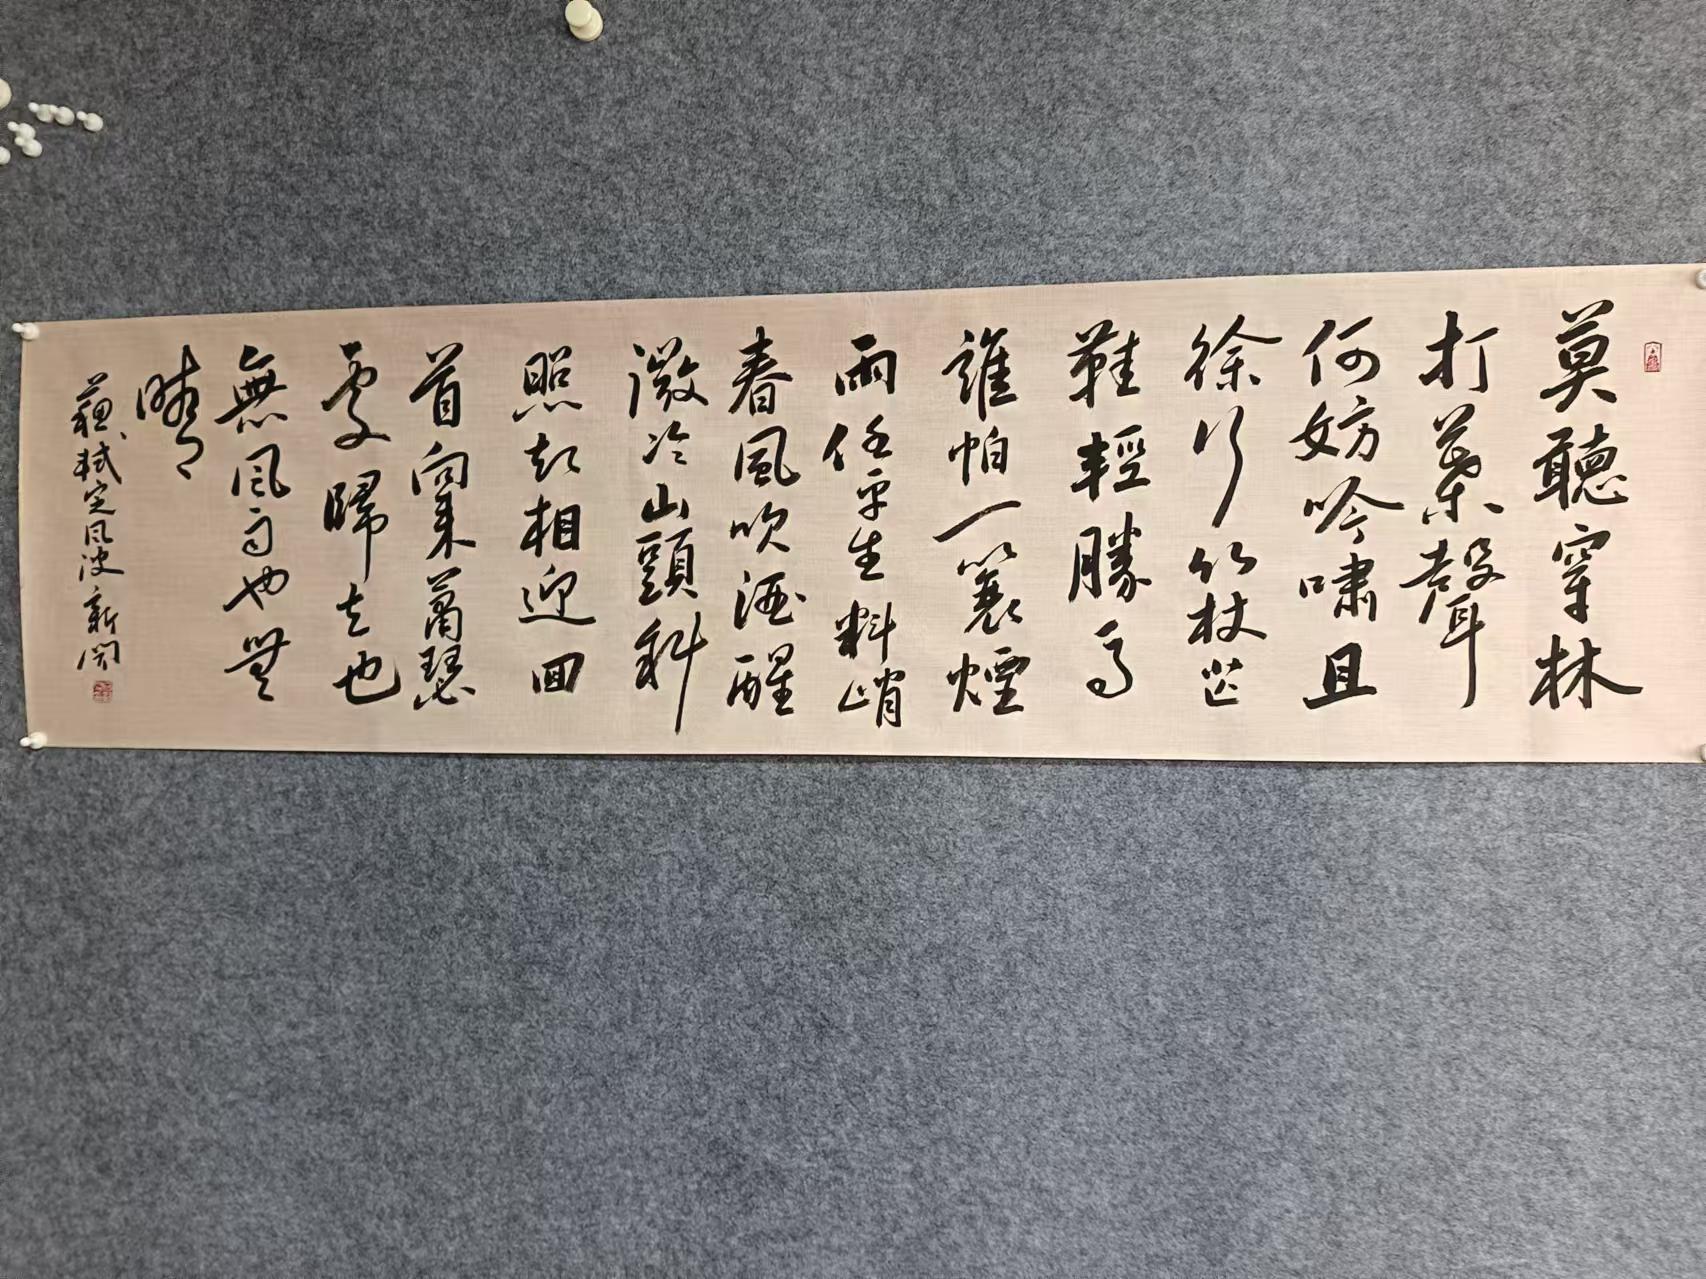 莫聽穿林
打葉聲
何妨吟嘯且
徐行竹杖芒
鞋輕勝馬
誰怕一蓑煙
雨任平生料峭
春風吹酒醒
微冷山頭斜
照却相迎回
首向来蕭瑟
處歸去也
無風雨也無
晴
蘇軾定風波新閑